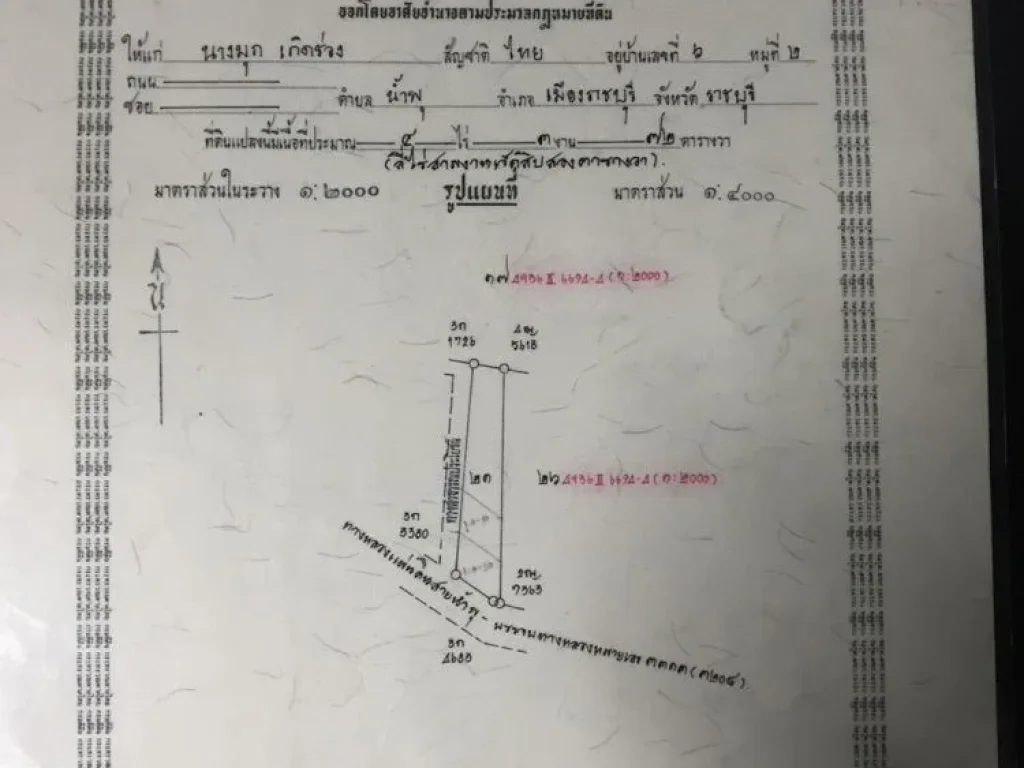 ออกโดยอาศัยอำนาจตามประมวลกฎหมายที่ดิน
ให้แก่ นางมุก เกิดร่วง สัญชาติ ไทย อยู่บ้านเลขที่ ๖ หมู่ที่ ๒
ถนน
ซอย ตำบล น้ำพุ อำเภอ เมืองราชบุรี จังหวัด ราชบุรี
ที่ดินแปลงนี้มีเนื้อที่ประมาณ ๔ ไร่ ๓ งาน ๗๒ ตารางวา
(สี่ไร่สามงานเจ็ดสิบสองตารางวา).
มาตราส่วนในระวาง ๑:๒๐๐๐ รูปแผนที่ มาตราส่วน ๑:๔๐๐๐
น
๑๗
3ก
1726
5618
ทางสาธารณประโยชน์
๒๓
๒๖
3ก
3380
7363
ทางหลวงแผ่นดินสายน้ำพุ -
3ก
4683